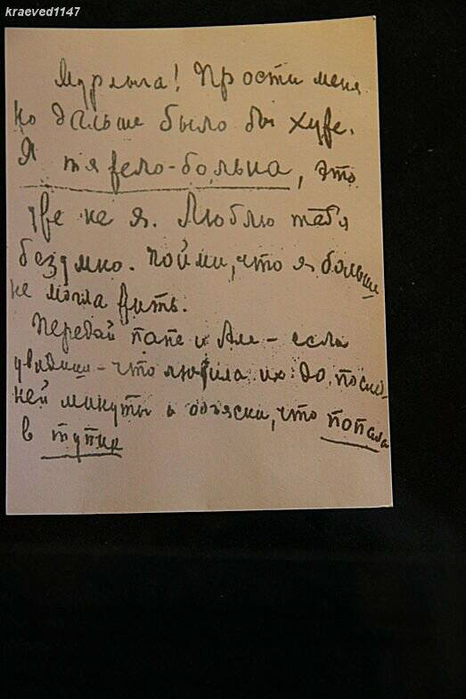 kraeved1147
Мурлыга! Прости меня
но дальше было бы хуже.
Я тяжело-больна, это
уже не я. Люблю тебя
безумно. Пойми, что я больше
не могла жить.
Передай папе и Але – если
увидишь – что любила их до послед-
ней минуты и объясни, что попала
в тупик